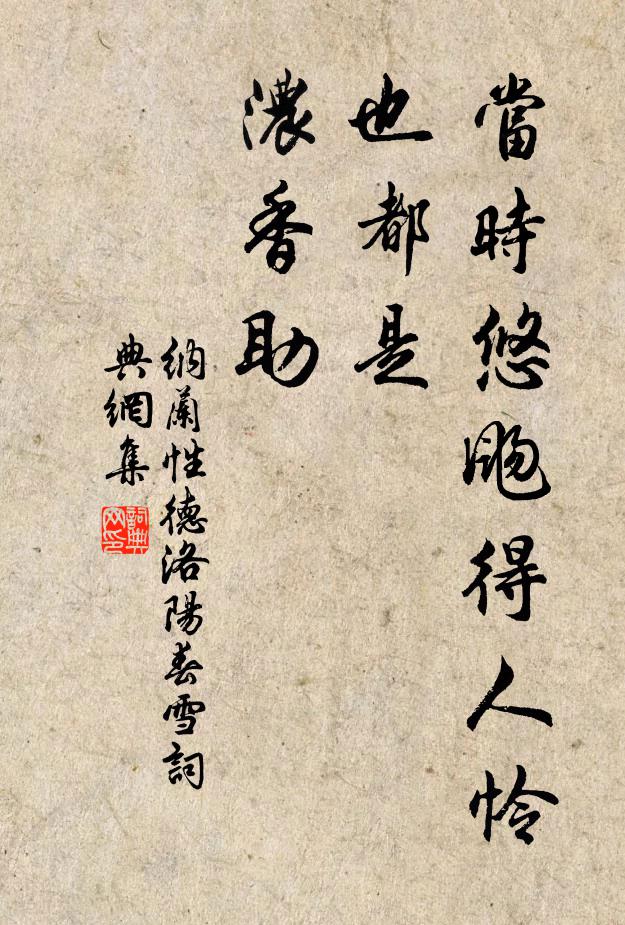 當時悠颺得人憐
也都是
濃香助
納蘭性德洛陽春雪詞
典網集
詞典
网印